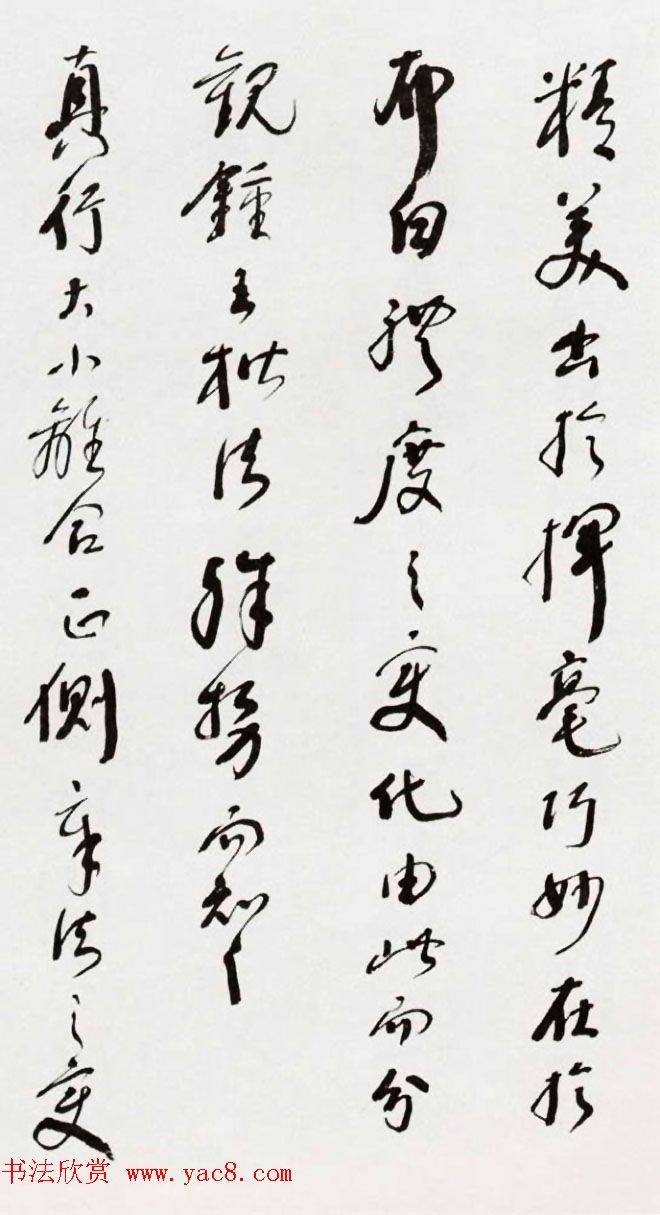 精美出於揮毫巧妙在於
布白體度之變化由此而分
觀鍾王楷法殊勢而知之
真行大小離合正側章法之變
书法欣赏 www.yac8.com